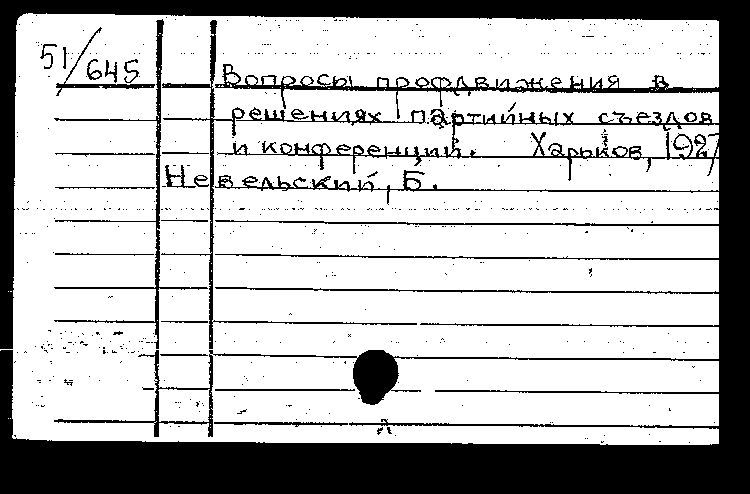 51/645
Вопросы профдвижения в
решениях партийных съездов
и конференций. Харьков, 1927
Невельский, Б.